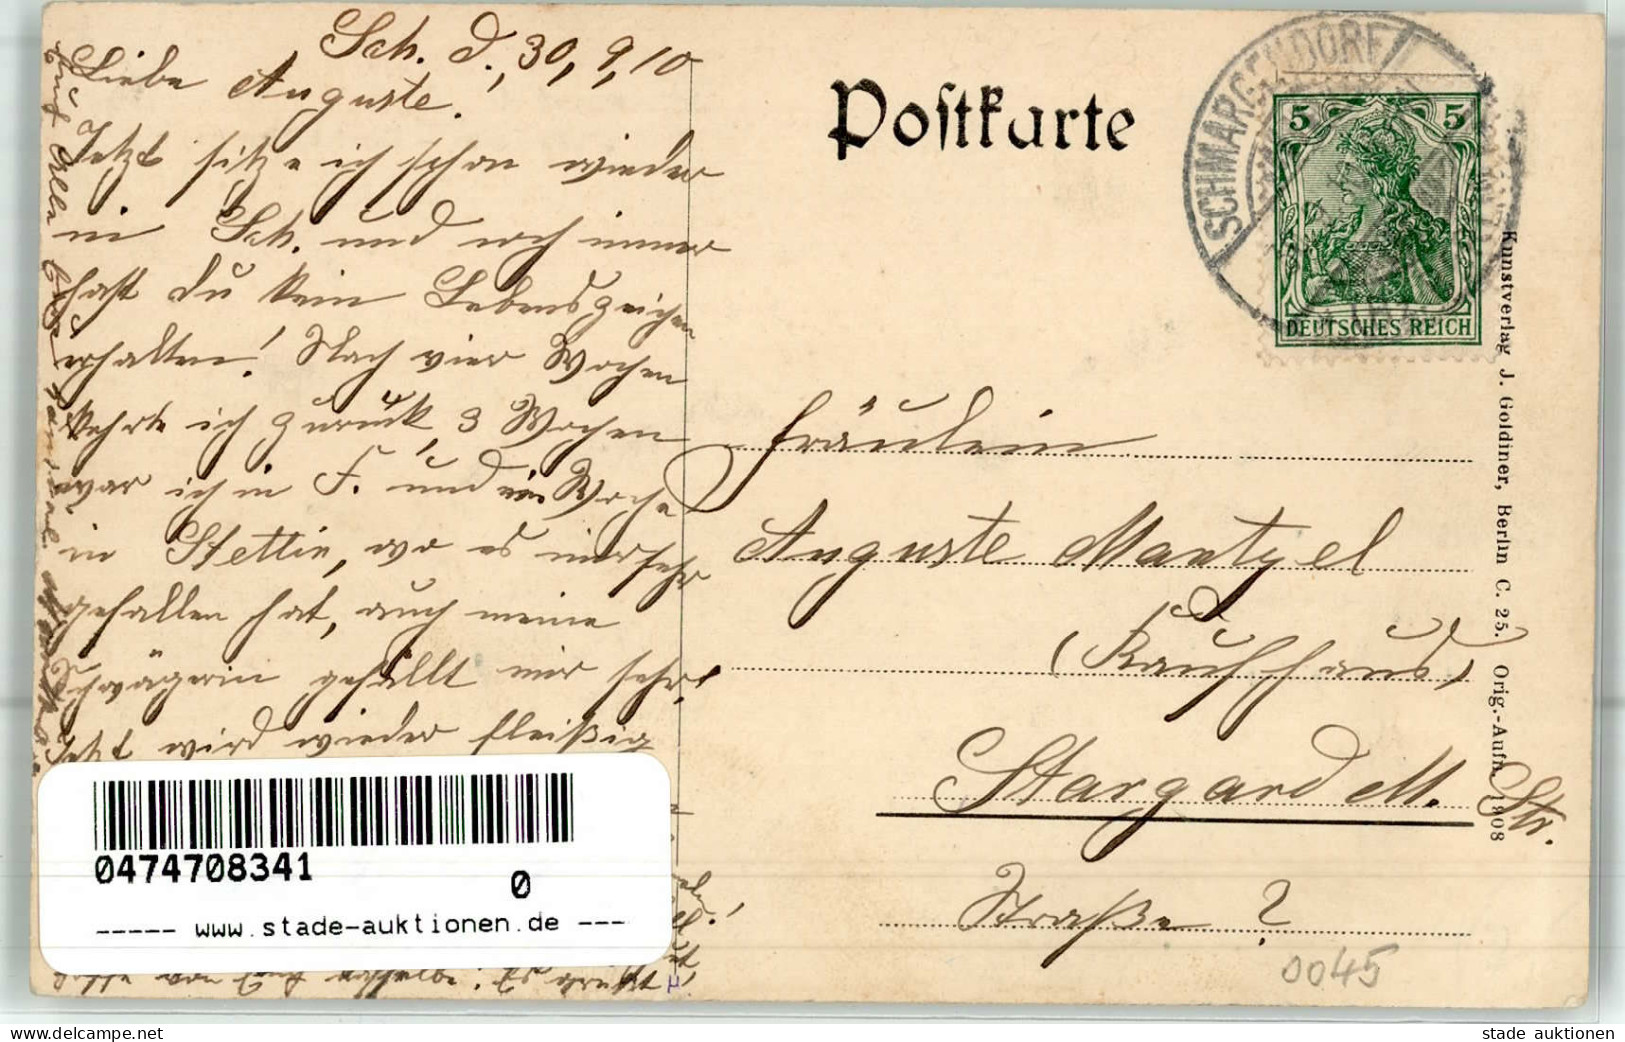 Sch. d., 30, 9, 10
Liebe Auguste.
Jetzt sitze ich schon wieder
in Sch. und noch immer
hast du kein Lebenszeichen
erhalten! Nach vier Wochen
kehrte ich zurück, 3 Wochen
war ich in F. und eine Woche
in Stettin, wo es mir sehr
gefallen hat, auch meine
Schwägerin gefällt mir sehr!
Jetzt wird wieder fleißig
Postkarte
SCHMARGENDORF
5 5
DEUTSCHES REICH
Fräulein
Auguste Mantzel
(Kaufhaus)
Stargard M. Str.
Straße?
0045
Kunstverlag J. Goldiner, Berlin C. 25. Orig.-Aufn. 1908
0474708341
0
----- www.stade-auktionen.de ---
https://www.delcampe.net
stade auktionen